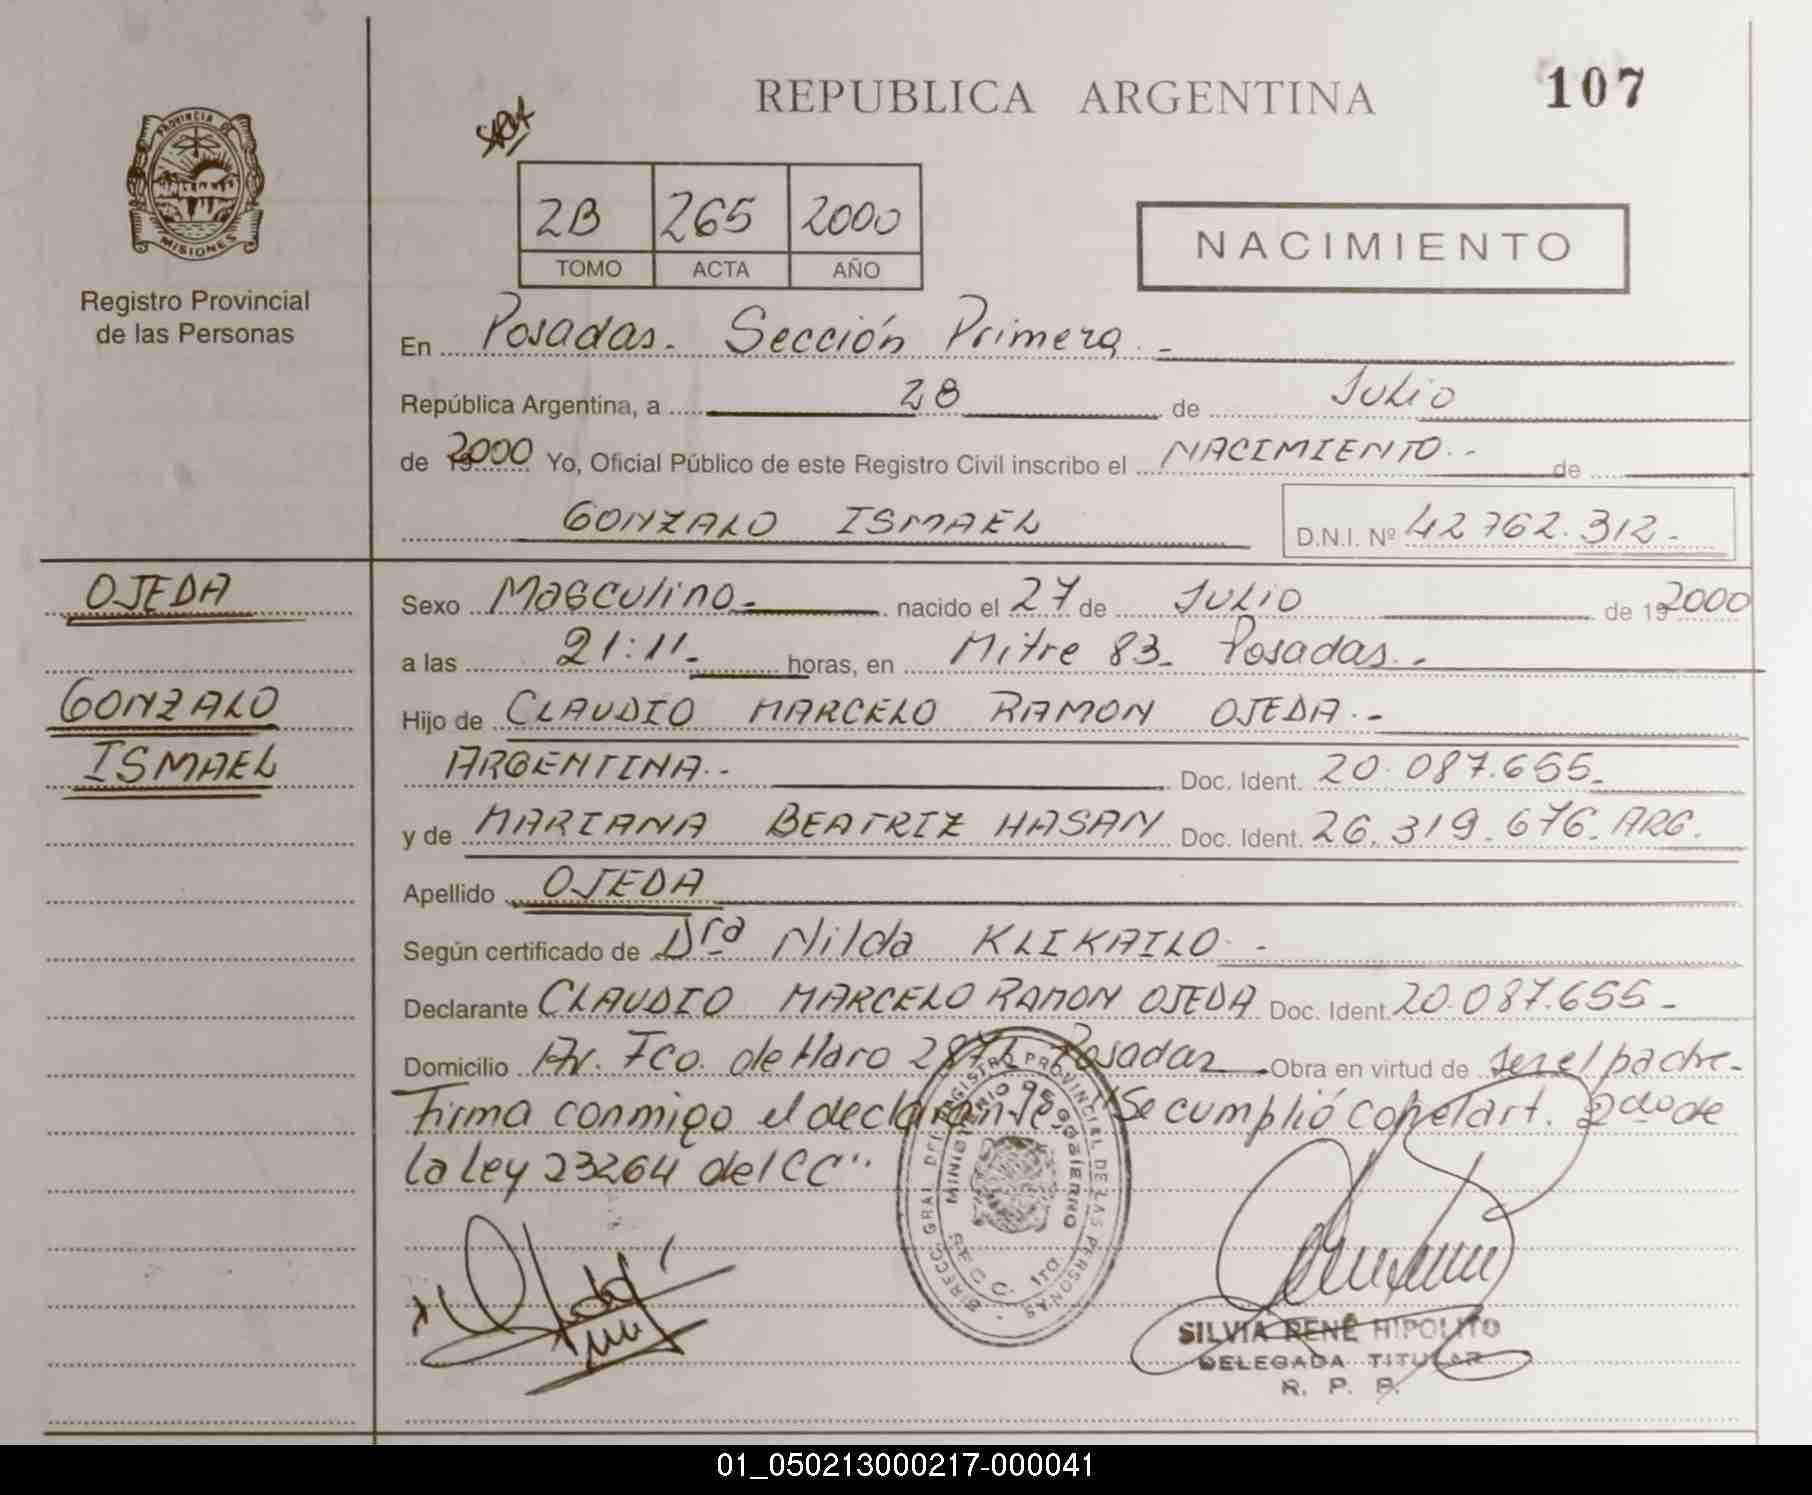 REPUBLICA ARGENTINA
107
PROVINCIA DE
MISIONES
Registro Provincial
de las Personas
2B 265 2000
TOMO ACTA AÑO
NACIMIENTO
En Posadas. Sección Primera.-
República Argentina, a 28 de Julio
de 2000 Yo, Oficial Público de este Registro Civil inscribo el NACIMIENTO.- de
GONZALO ISMAEL D.N.I. Nº 42 762.312.-
OJEDA
GONZALO
ISMAEL
Sexo Masculino.- nacido el 27 de JULIO de 19 2000
a las 21:11.- horas, en Mitre 83. Posadas.-
Hijo de CLAUDIO MARCELO RAMON OJEDA.-
ARGENTINA.- Doc. Ident. 20.087.655.-
y de MARIANA BEATRIZ HASAN Doc. Ident. 26.319.676. ARG.
Apellido OJEDA
Según certificado de Dra Nilda KLIKAILO.-
Declarante CLAUDIO MARCELO RAMON OJEDA Doc. Ident. 20.087.655.-
Domicilio Av. Fco. de Haro Posadas Obra en virtud de ser el padre.-
Firma conmigo el declarante. "Se cumplió con el art. 2do de
la Ley 23264 del CC".
DIRECC. GRAL. DEL REGISTRO PROVINCIAL DE LAS PERSONAS
MINISTERIO DE GOBIERNO
SECC. 1ra.
SILVIA RENÉ HIPOLITO
DELEGADA TITULAR
R. P. P.
01_050213000217-000041